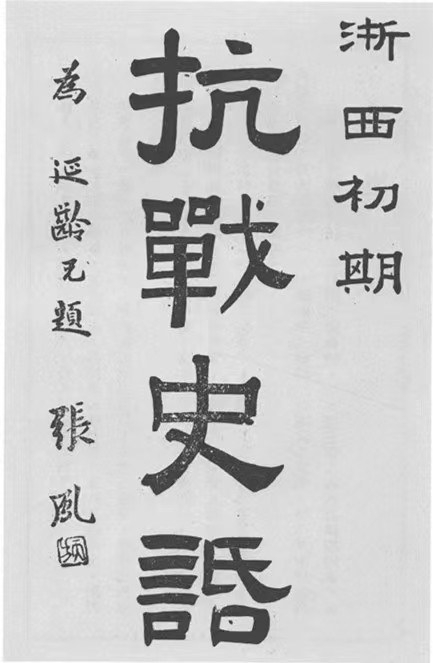 浙西初期
抗戰史話
為延齡兄題 張鳳